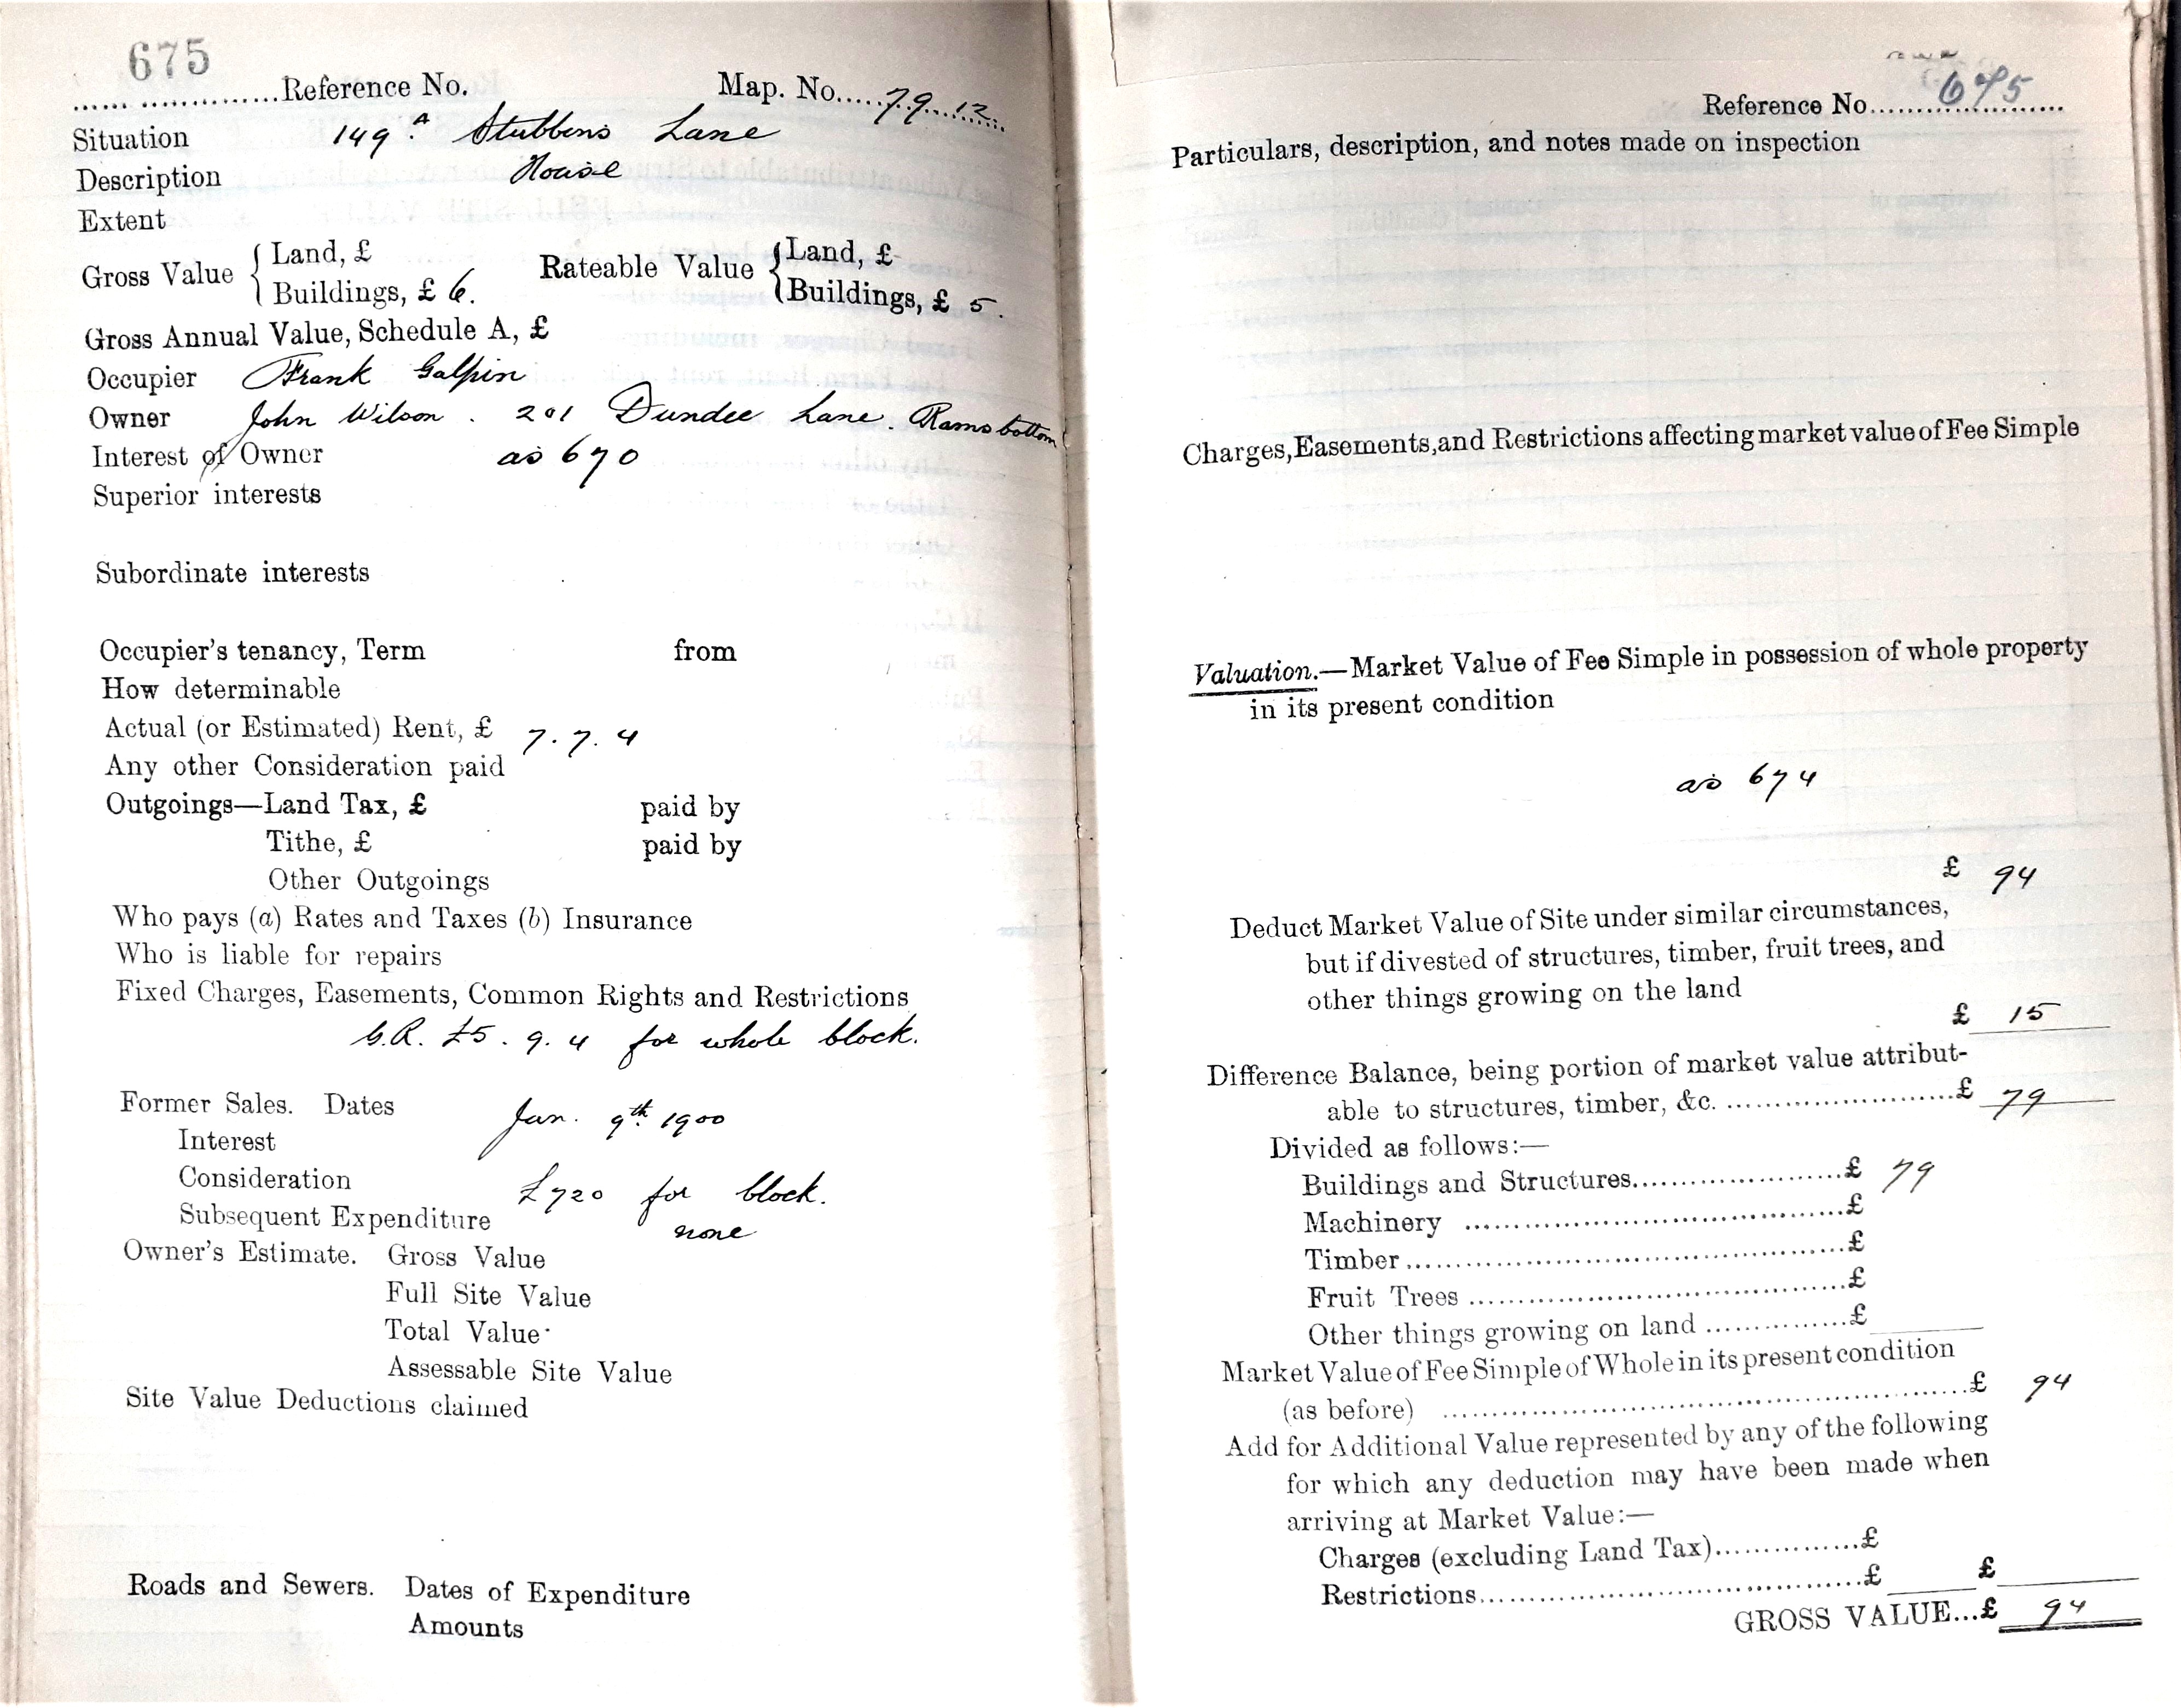 675
...... ..............Reference No. Map. No.....79.12.
Situation 149A Stubbins Lane
Description House
Extent
Gross Value { Land, £ Rateable Value { Land, £
Buildings, £ 6. Buildings, £ 5.
Gross Annual Value, Schedule A, £
Occupier Frank Galpin
Owner John Wilson. 201 Dundee Lane. Ramsbottom
Interest of Owner as 670
Superior interests
Subordinate interests
Occupier's tenancy, Term from
How determinable
Actual (or Estimated) Rent, £ 7.7.4
Any other Consideration paid
Outgoings—Land Tax, £ paid by
Tithe, £ paid by
Other Outgoings
Who pays (a) Rates and Taxes (b) Insurance
Who is liable for repairs
Fixed Charges, Easements, Common Rights and Restrictions
G.R. £5.9.4 for whole block.
Former Sales. Dates Jan. 9th 1900
Interest
Consideration £720 for block.
Subsequent Expenditure none
Owner's Estimate. Gross Value
Full Site Value
Total Value
Assessable Site Value
Site Value Deductions claimed
Roads and Sewers. Dates of Expenditure
Amounts
Reference No......675......
Particulars, description, and notes made on inspection
Charges, Easements, and Restrictions affecting market value of Fee Simple
Valuation.—Market Value of Fee Simple in possession of whole property
in its present condition
as 674
£ 94
Deduct Market Value of Site under similar circumstances,
but if divested of structures, timber, fruit trees, and
other things growing on the land
£ 15
Difference Balance, being portion of market value attribut-
able to structures, timber, &c. ........................£ 79
Divided as follows:—
Buildings and Structures........................£ 79
Machinery ........................£
Timber........................£
Fruit Trees ........................£
Other things growing on land ...............£
Market Value of Fee Simple of Whole in its present condition
(as before) ........................£ 94
Add for Additional Value represented by any of the following
for which any deduction may have been made when
arriving at Market Value:—
Charges (excluding Land Tax)...............£
Restrictions........................£ £
GROSS VALUE...£ 94